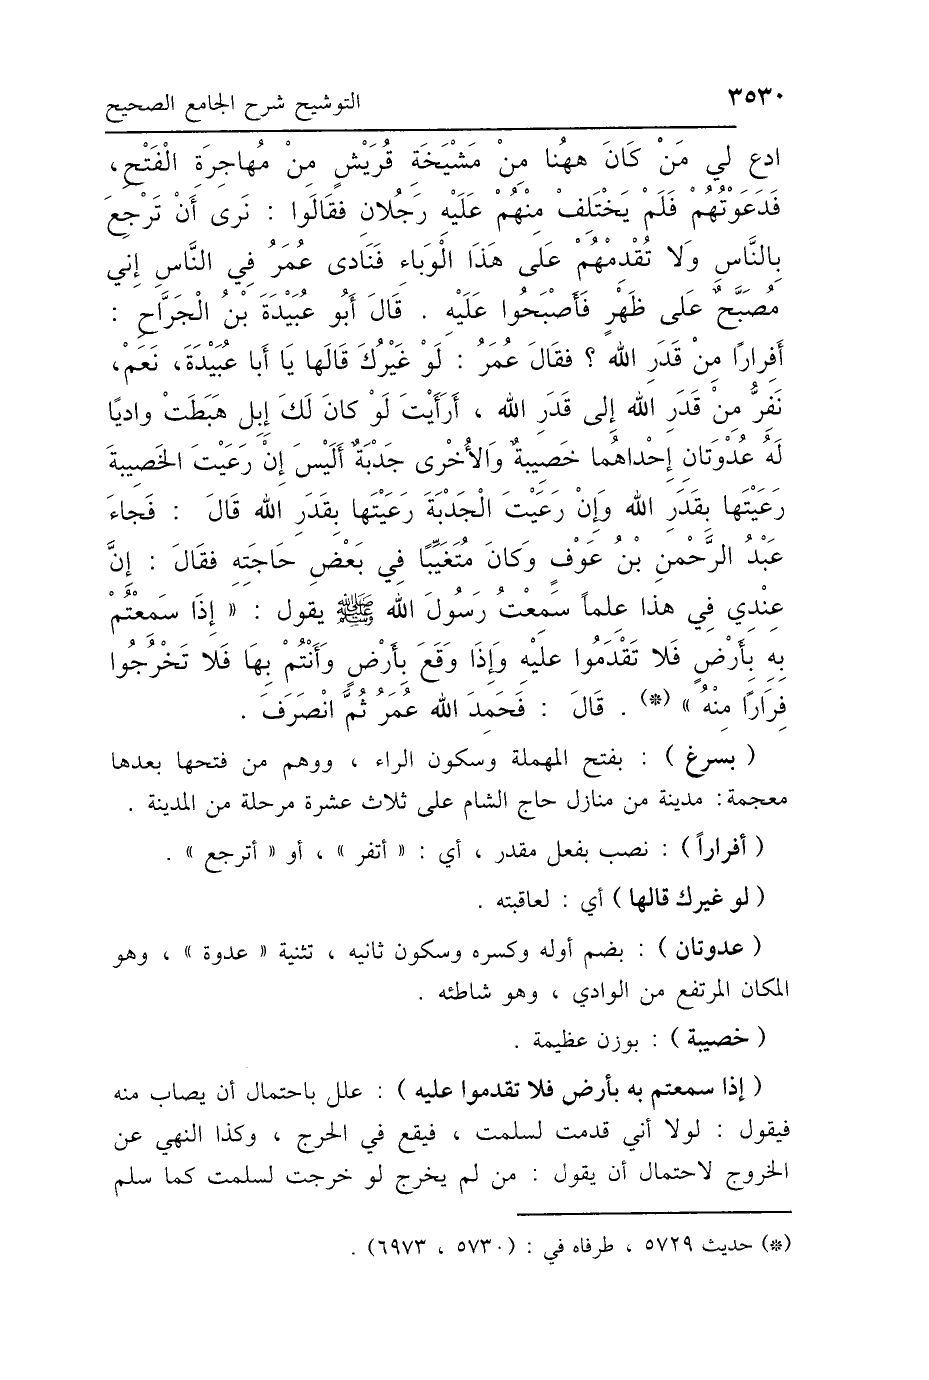 ٣٥٣٠ التوشيح شرح الجامع الصحيح
ادع لي مَنْ كَانَ هٰهُنا مِنْ مَشْيَخَةِ قُرَيْشٍ مِنْ مُهاجِرَةِ الْفَتْحِ،
فَدَعَوْتُهُمْ فَلَمْ يَخْتَلِفْ مِنْهُمْ عَلَيْهِ رَجُلانِ فقَالَوا : نَرى أَنْ تَرْجِعَ
بِالنَّاسِ وَلا تُقْدِمُهُمْ عَلى هَذَا الْوَبَاءِ فَنَادى عُمَرُ فِي النَّاسِ إنِي
مُصَبَّحٌ عَلى ظَهْرٍ فَأَصْبَحُوا عَلَيْهِ . قَالَ أَبُو عُبَيْدَةَ بْنُ الْجَرَّاحِ :
أَفرارًا مِنْ قَدَرِ الله ؟ فقَالَ عُمَرُ : لَوْ غَيْرُكَ قَالَها يَا أَبا عُبَيْدَةَ، نَعَمْ،
نَفِرُّ مِنْ قَدَرِ الله إلى قَدَرِ الله ، أَرَأَيْتَ لَوْ كانَ لَكَ إبِل هَبَطَتْ واديًا
لَهُ عُدْوَتان إحْداهُما خَصِيبةٌ وَالأُخْرى جَدْبَةٌ أَلَيْسَ إنْ رَعَيْتَ الخَصِيبةَ
رَعَيْتَها بِقَدَرِ الله وَإنْ رَعَيْتَ الْجَدْبَةَ رَعَيْتَها بِقَدَرِ الله قَالَ : فَجاءَ
عَبْدُ الرَّحْمنِ بْنُ عَوْفٍ وَكانَ مُتَغَيِّبًا فِي بَعْضِ حَاجَتِهِ فقَالَ : إنَّ
عِنْدِي فِي هذا عِلماً سَمِعْتُ رَسُولَ الله ﷺ يقول : « إذَا سَمِعْتُمْ
بِهِ بِأَرْضٍ فَلا تَقْدَمُوا عليْهِ وَإذَا وَقَعَ بِأَرْضٍ وَأَنْتُمْ بِهَا فَلا تَخْرُجُوا
فِرَارًا مِنْهُ » (*) . قَالَ : فَحَمِدَ الله عُمَرُ ثُمَّ انْصَرَفَ .
( بسرغ ) : بفتح المهملة وسكون الراء ، ووهم من فتحها بعدها
معجمة: مدينة من منازل حاج الشام على ثلاث عشرة مرحلة من المدينة .
( أفراراً ) : نصب بفعل مقدر ، أي : « أتفر » ، أو « أترجع » .
( لو غيرك قالها ) أي : لعاقبته .
( عدوتان ) : بضم أوله وكسره وسكون ثانيه ، تثنية « عدوة » ، وهو
المكان المرتفع من الوادي ، وهو شاطئه .
( خصيبة ) : بوزن عظيمة .
( إذا سمعتم به بأرض فلا تقدموا عليه ) : علل باحتمال أن يصاب منه
فيقول : لولا أني قدمت لسلمت ، فيقع في الحرج ، وكذا النهي عن
الخروج لاحتمال أن يقول : من لم يخرج لو خرجت لسلمت كما سلم
(*) حديث ٥٧٢٩ ، طرفاه في : (٥٧٣٠ ، ٦٩٧٣) .